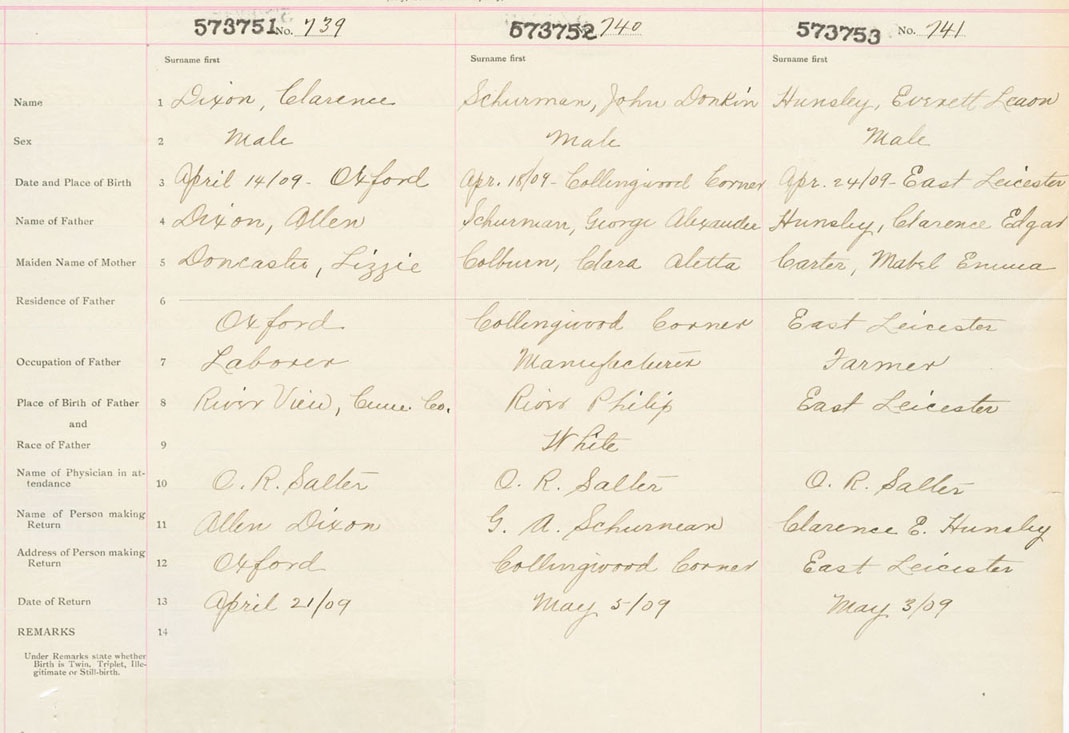 573751 No. 739 573752 740 573753 No. 741
Surname first Surname first Surname first
Name 1 Dixon, Clarence Schurman, John Donkin Hunsley, Everett Leaon
Sex 2 Male Male Male
Date and Place of Birth 3 April 14/09- Oxford Apr. 18/09- Collingwood Corner Apr. 24/09- East Leicester
Name of Father 4 Dixon, Allen Schurman, George Alexander Hunsley, Clarence Edgar
Maiden Name of Mother 5 Doncaster, Lizzie Colburn, Clara Aletta Carter, Mabel Emma
Residence of Father 6
Oxford Collingwood Corner East Leicester
Occupation of Father 7 Laborer Manufacturer Farmer
Place of Birth of Father 8 River View, Cum. Co. River Philip East Leicester
and
Race of Father 9 White
Name of Physician in at-
tendance 10 O. R. Salter O. R. Salter O. R. Salter
Name of Person making
Return 11 Allen Dixon G. A. Schurman Clarence E. Hunsley
Address of Person making
Return 12 Oxford Collingwood Corner East Leicester
Date of Return 13 April 21/09 May 5/09 May 3/09
REMARKS 14
Under Remarks state whether
Birth is Twin, Triplet, Ille-
gitimate or Still-birth.